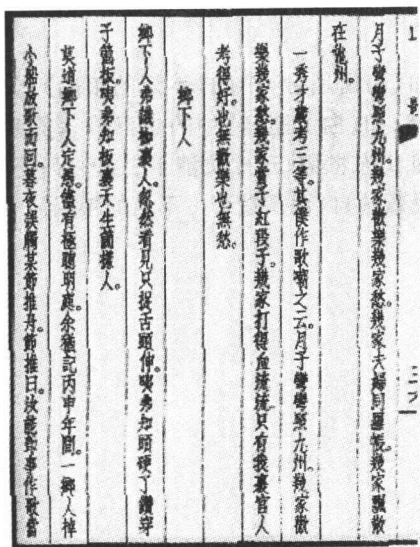 月子彎彎照九州。幾家歡樂幾家愁。幾家夫婦同羅帳。幾家飄散
在他州。
一秀才歲考三等。其僕作歌嘲之云。月子彎彎照九州。幾家歡
樂幾家愁。幾家賞子紅段子。幾家打得血流流。只有我裏官人
考得好。也無歡樂也無愁。
鄉下人
鄉下人弗識枷裏人。忽然看見只捉舌頭伸。咦弗知頭硬了鑽穿
子箇板。咦弗知板裏天生箇樣人。
莫道鄉下人定愚。儘有極聰明處。余猶記丙申年間。一鄉人棹
小船放歌而回。暮夜誤觸某節推舟。節推曰。汝能即事作歌當